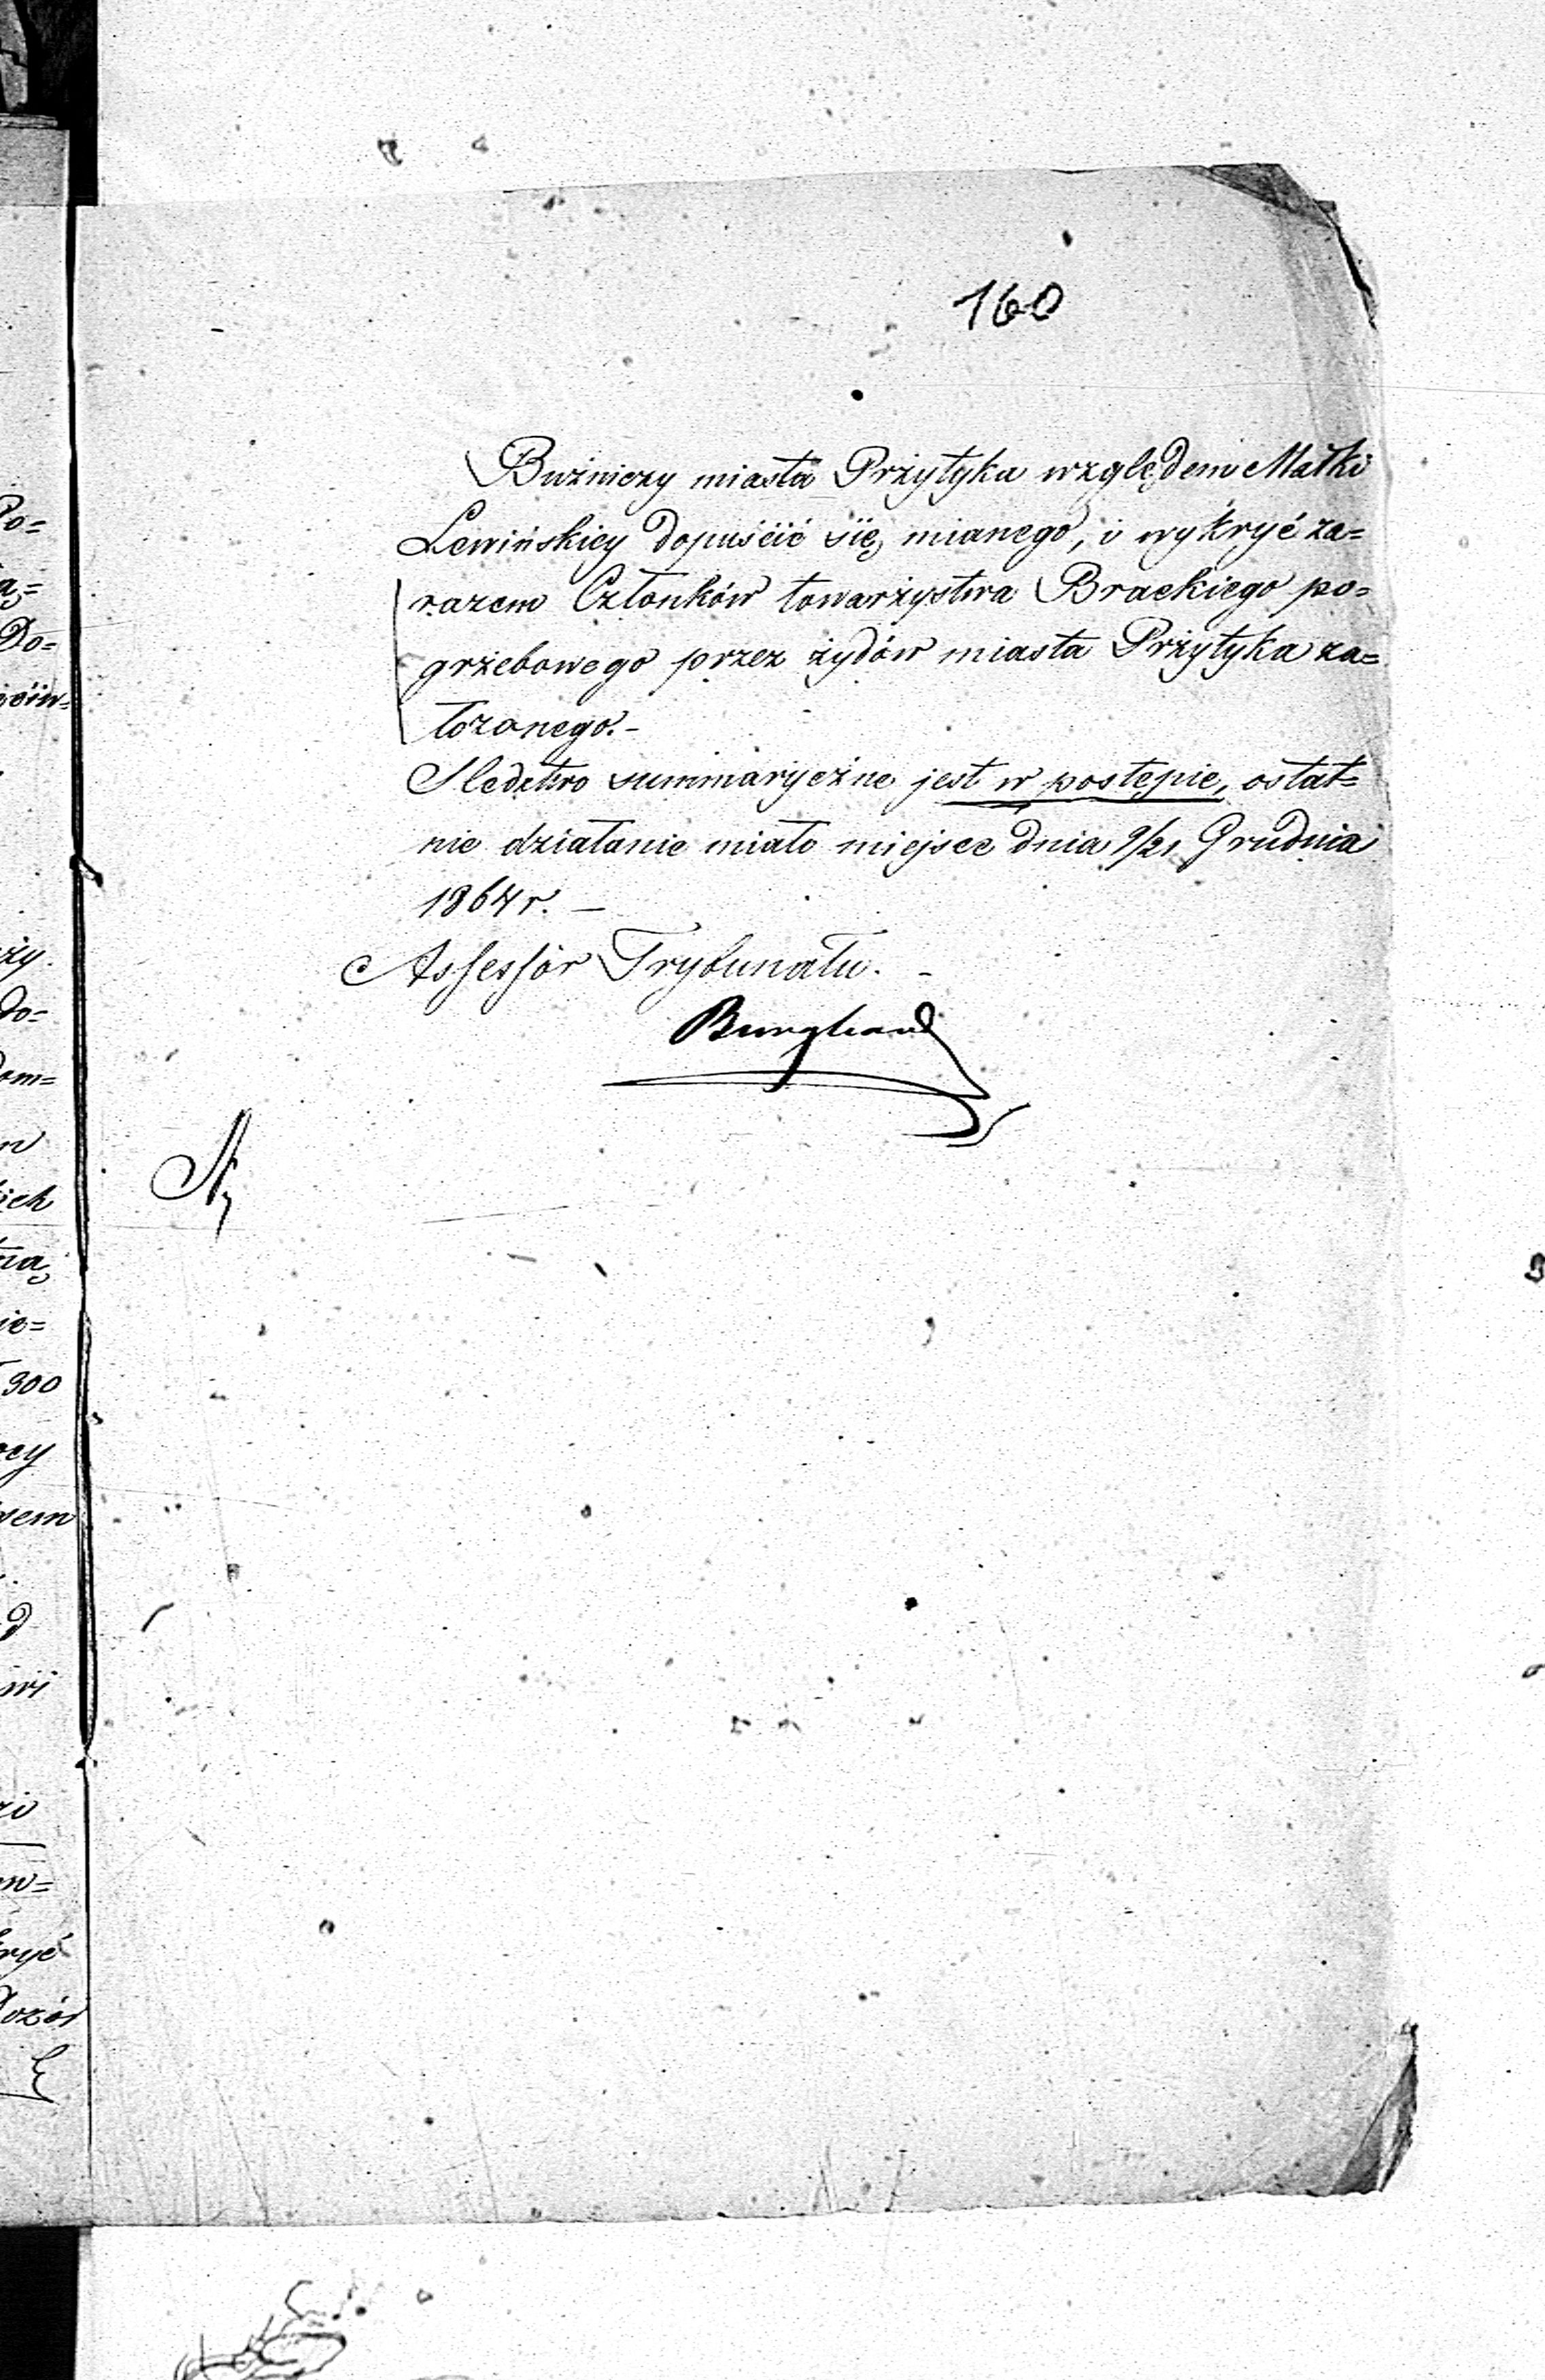 160
Bużniczy miasta Przytyka względem Matki
Lewińskiey dopuścić się mianego, i wykryć za=
razem Członków towarzystwa Brackiego po=
grzebowego przez żydów miasta Przytyka za=
łożonego.-
Sledztwo summaryczne jest w postępie, ostat=
nie działanie miało miejsce dnia 9/21 Grudnia
1864 r. —
Assessor Trybunału. -
Po=
Do=
do=
ich
ie=
300
sem
ryć